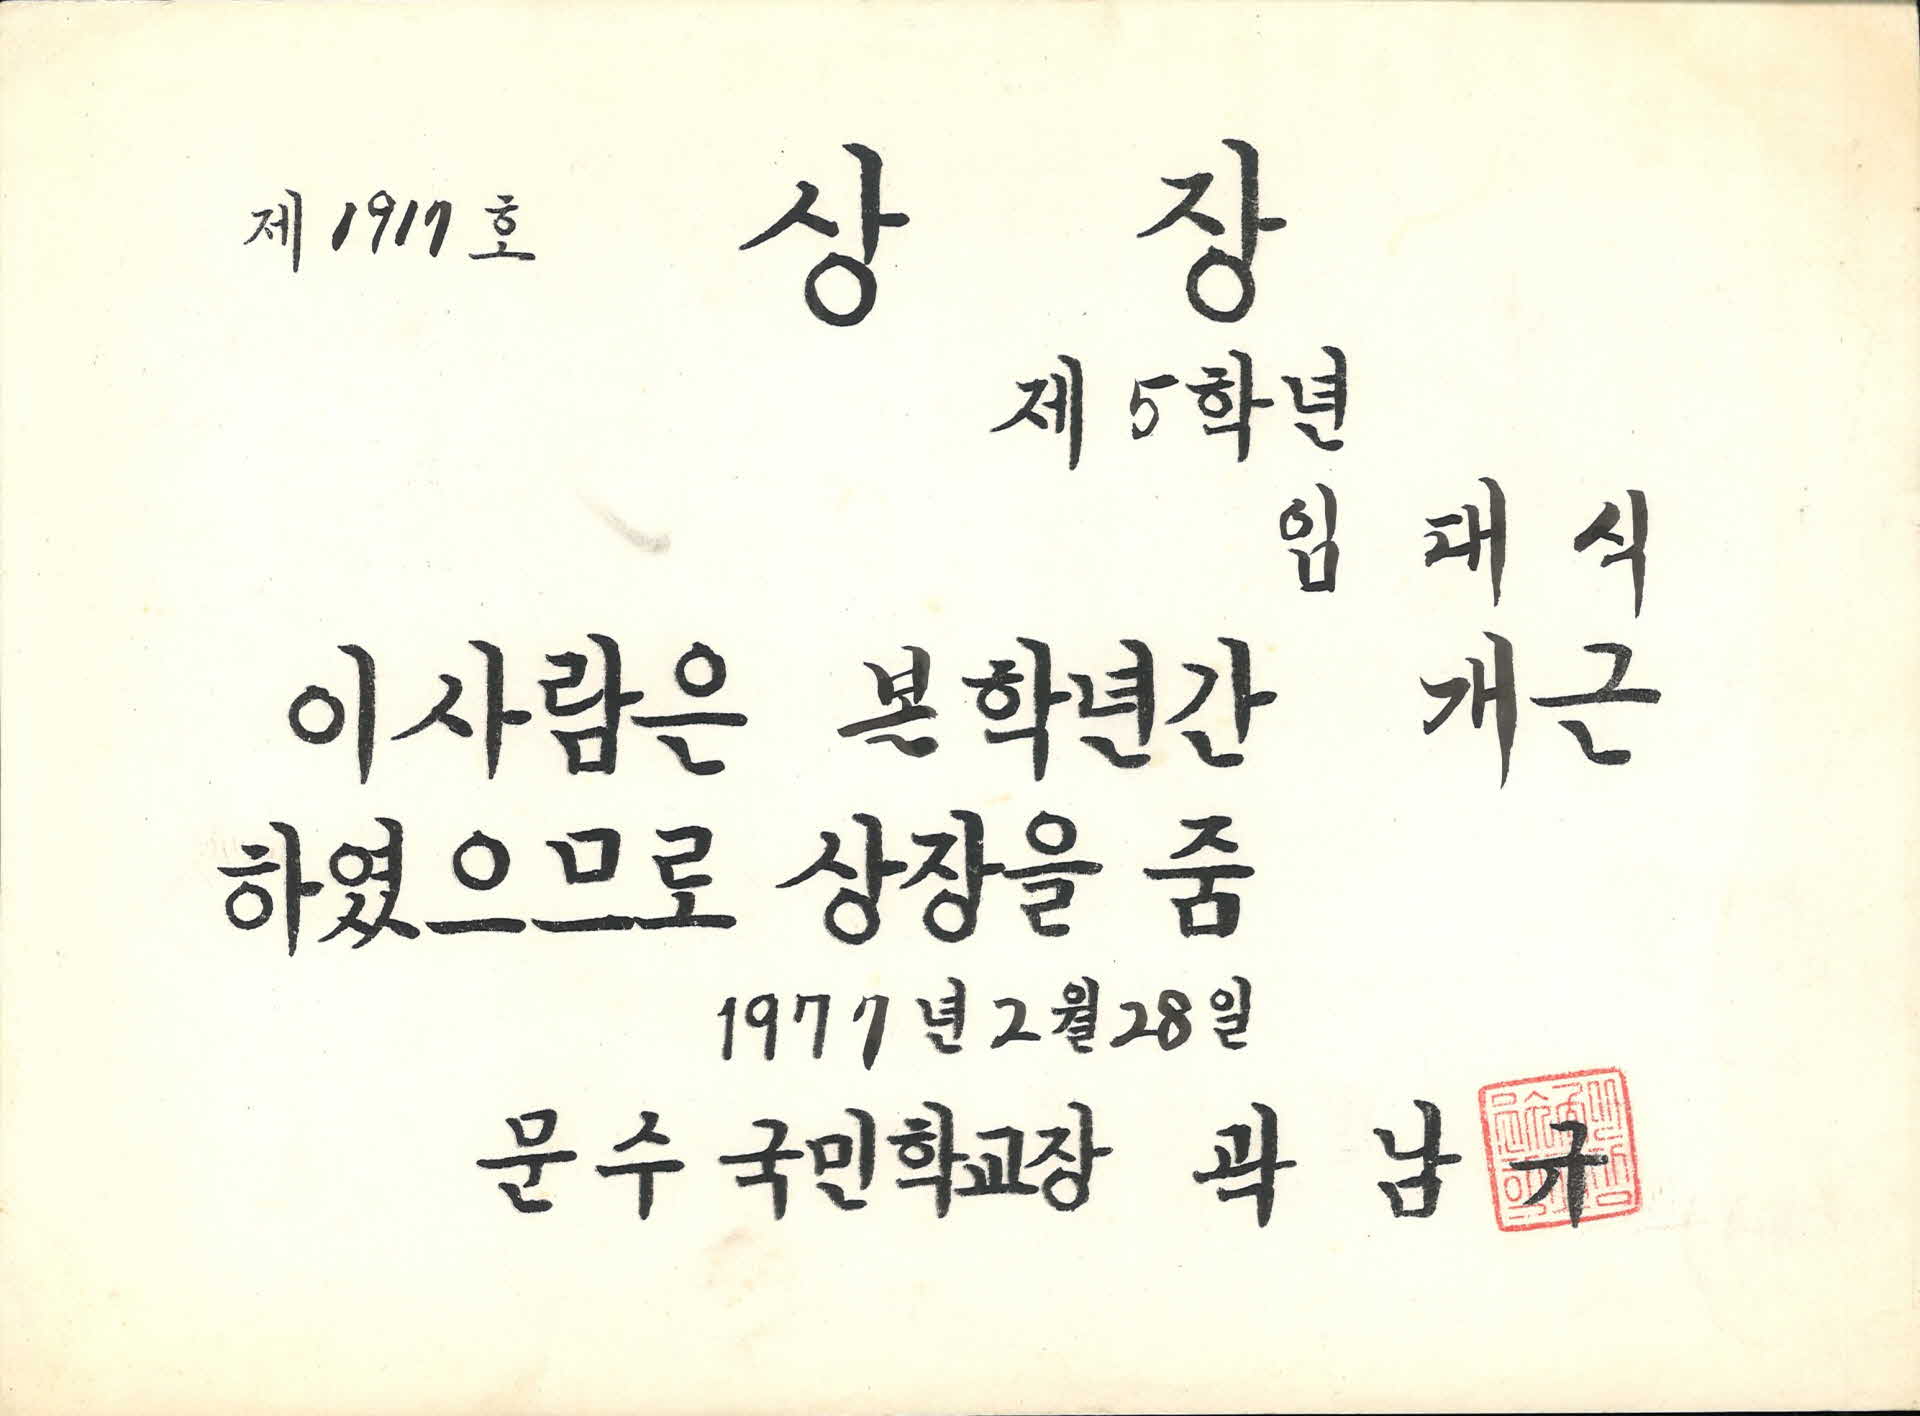 제 1917 호
상 장
제 5 학년
임 태 식
이 사람은 본 학년간 개근
하였으므로 상장을 줌
1977 년 2 월 28 일
문수 국민학교장 곽 남 규